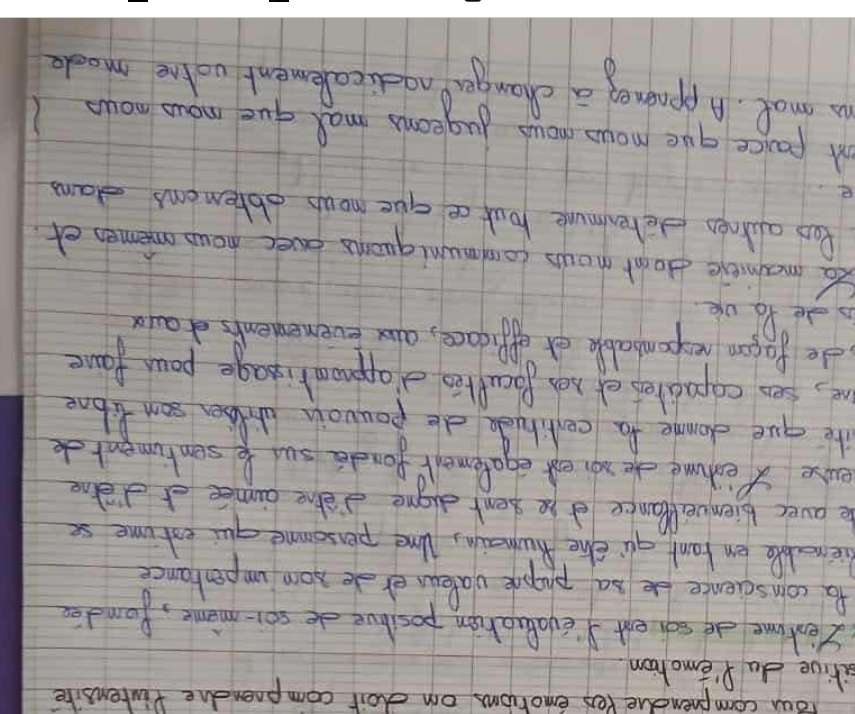 Pour comprendre les émotions on doit comprendre l'intensité
sitive du l'émotion.
L'estime de soi est l'évaluation positive de soi-même, fondée
la conscience de sa propre valeur et de son importance
liénable en tant qu'être humain, Une personne qui estime se
te avec bienveillance et se sent digne d'être aimée et d'être
euse L'estime de soi est également fondée sur le sentiment de
ité que donne la certitude de pouvoir utiliser son libre
tre, ses capacités et ses facultés d'apprentissage pour faire
, de façon responsable et efficace, aux événements et aux
s de la vie.
La manière dont nous communiquons avec nous mêmes et.
les autres détermine tout ce que nous obtenons dans
e.
ent parce que nous nous jugeons mal que nous nous
ns mal. Apprenez à changer radicalement votre mode